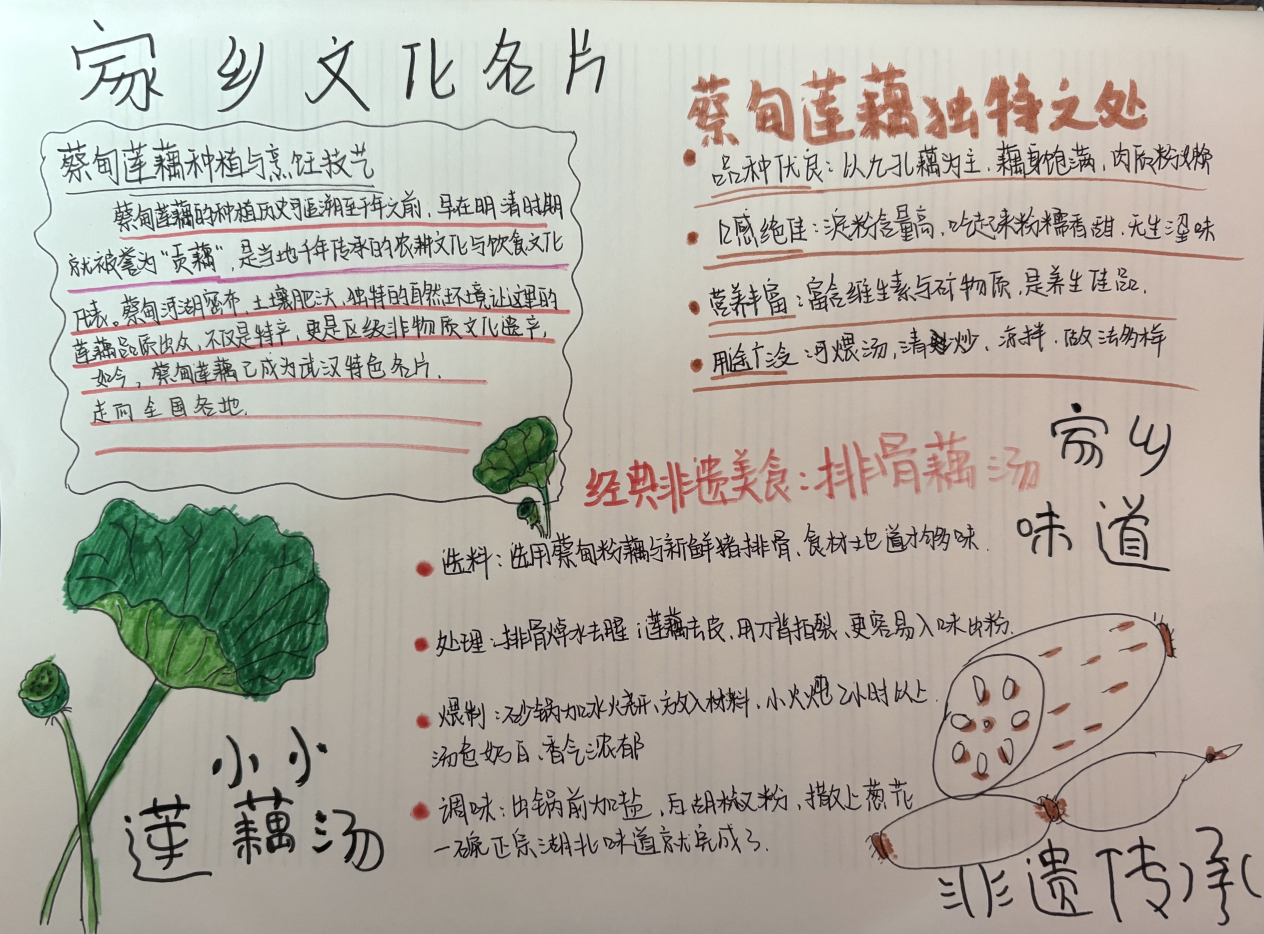 家乡文化名片
蔡甸莲藕种植与烹饪技艺
蔡甸莲藕的种植历史可追溯至千年之前，早在明清时期
就被誉为“贡藕”，是当地千年传承的农耕文化与饮食文化
代表。蔡甸河湖密布，土壤肥沃，独特的自然环境让这里的
莲藕品质出众，不仅是特产，更是区级非物质文化遗产，
如今，蔡甸莲藕已成为武汉特色名片，
走向全国各地.
蔡甸莲藕独特之处
品种优良：以九孔藕为主，藕身饱满，肉质粉
口感绝佳：淀粉含量高，吃起来粉糯香甜，无生涩味
营养丰富：富含维生素与矿物质，是养生佳品.
用途广泛：可煨汤，清炒、凉拌，做法多样
经典非遗美食：排骨藕汤
家乡
味道
选料：选用蔡甸粉藕与新鲜猪排骨、食材地道才够味.
处理：排骨焯水去腥；莲藕去皮，用刀背拍裂、更容易入味出粉.
煨制：砂锅加水烧开、放入材料，小火炖2小时以上
汤色奶白、香气浓郁
调味：出锅前加盐，白胡椒粉，撒上葱花
一碗正宗湖北味道就完成了.
小小
莲藕汤
非遗传承